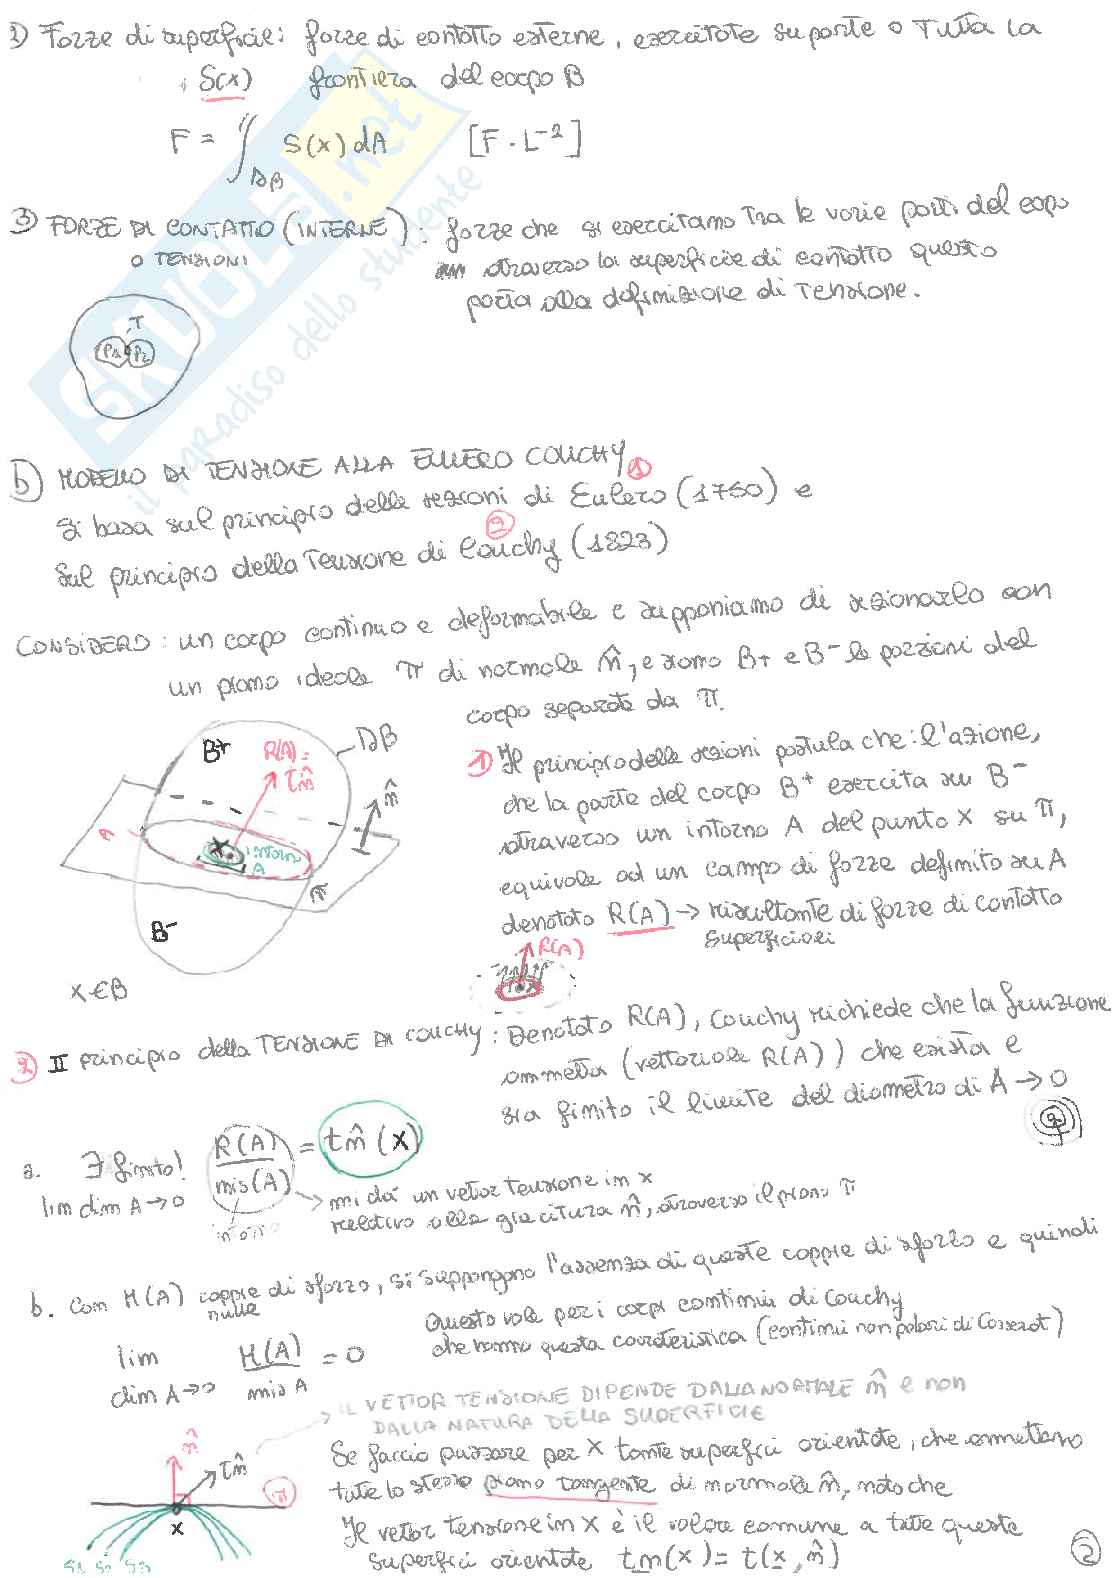 2) Forze di superficie: forze di contatto esterne, esercitate su parte o tutta la
S(x) frontiera del corpo B
F = ∫∂B S(x) dA [F · L⁻²]
3) FORZE DI CONTATTO (INTERNE): forze che si esercitano tra le varie parti del corpo
O TENSIONI attraverso la superficie di contatto questo
porta alla definizione di tensione.
T
P1 P2
SKUOLA.net
il paradiso dello studente
b) MODELLO DI TENSIONE ALLA EULERO COUCHY
Si basa sul principio delle sezioni di Eulero (1760) e 1
sul principio della tensione di Couchy (1823) 2
CONSIDERO: un corpo continuo e deformabile e supponiamo di sezionarlo con
un piano ideale π di normale n̂, e siano B+ e B- le porzioni del
corpo separate da π.
B+ R(A)= tn̂ ∂B n̂
x intorno A π
B-
x ∈ B
1) Il principio delle sezioni postula che: l'azione,
che la parte del corpo B+ esercita su B-
attraverso un intorno A del punto x su π,
equivale ad un campo di forze definito su A
denotato R(A) → risultante di forze di contatto
superficiali
R(A)
x
2) II principio della TENSIONE DI COUCHY: Denotato R(A), Couchy richiede che la funzione
ammetta (vettoriale R(A)) che esista e
sia finito il limite del diametro di A → 0
a. ∃ finito!
lim dim A→0 R(A)/mis(A) = tn̂(x)
intorno
mi dà un vettor tensione in x
relativo alla giacitura n̂, attraverso il piano π
b. Con M(A) coppie di sforzo, si suppongono l'assenza di queste coppie di sforzo e quindi
nulle
lim dim A→0 M(A)/mis A = 0
Questo vale per i corpi continui di Couchy
che hanno questa caratteristica (continui non polari di Cosserat)
IL VETTOR TENSIONE DIPENDE DALLA NORMALE n̂ e non
DALLA NATURA DELLA SUPERFICIE
n̂ tn̂ π
x
S1 S2 S3
Se faccio passare per x tante superfici orientate, che ammettano
tutte lo stesso piano tangente di normale n̂, noto che
Il vettor tensione in x è il valore comune a tutte queste
superfici orientate tn(x) = t(x, n̂)
2